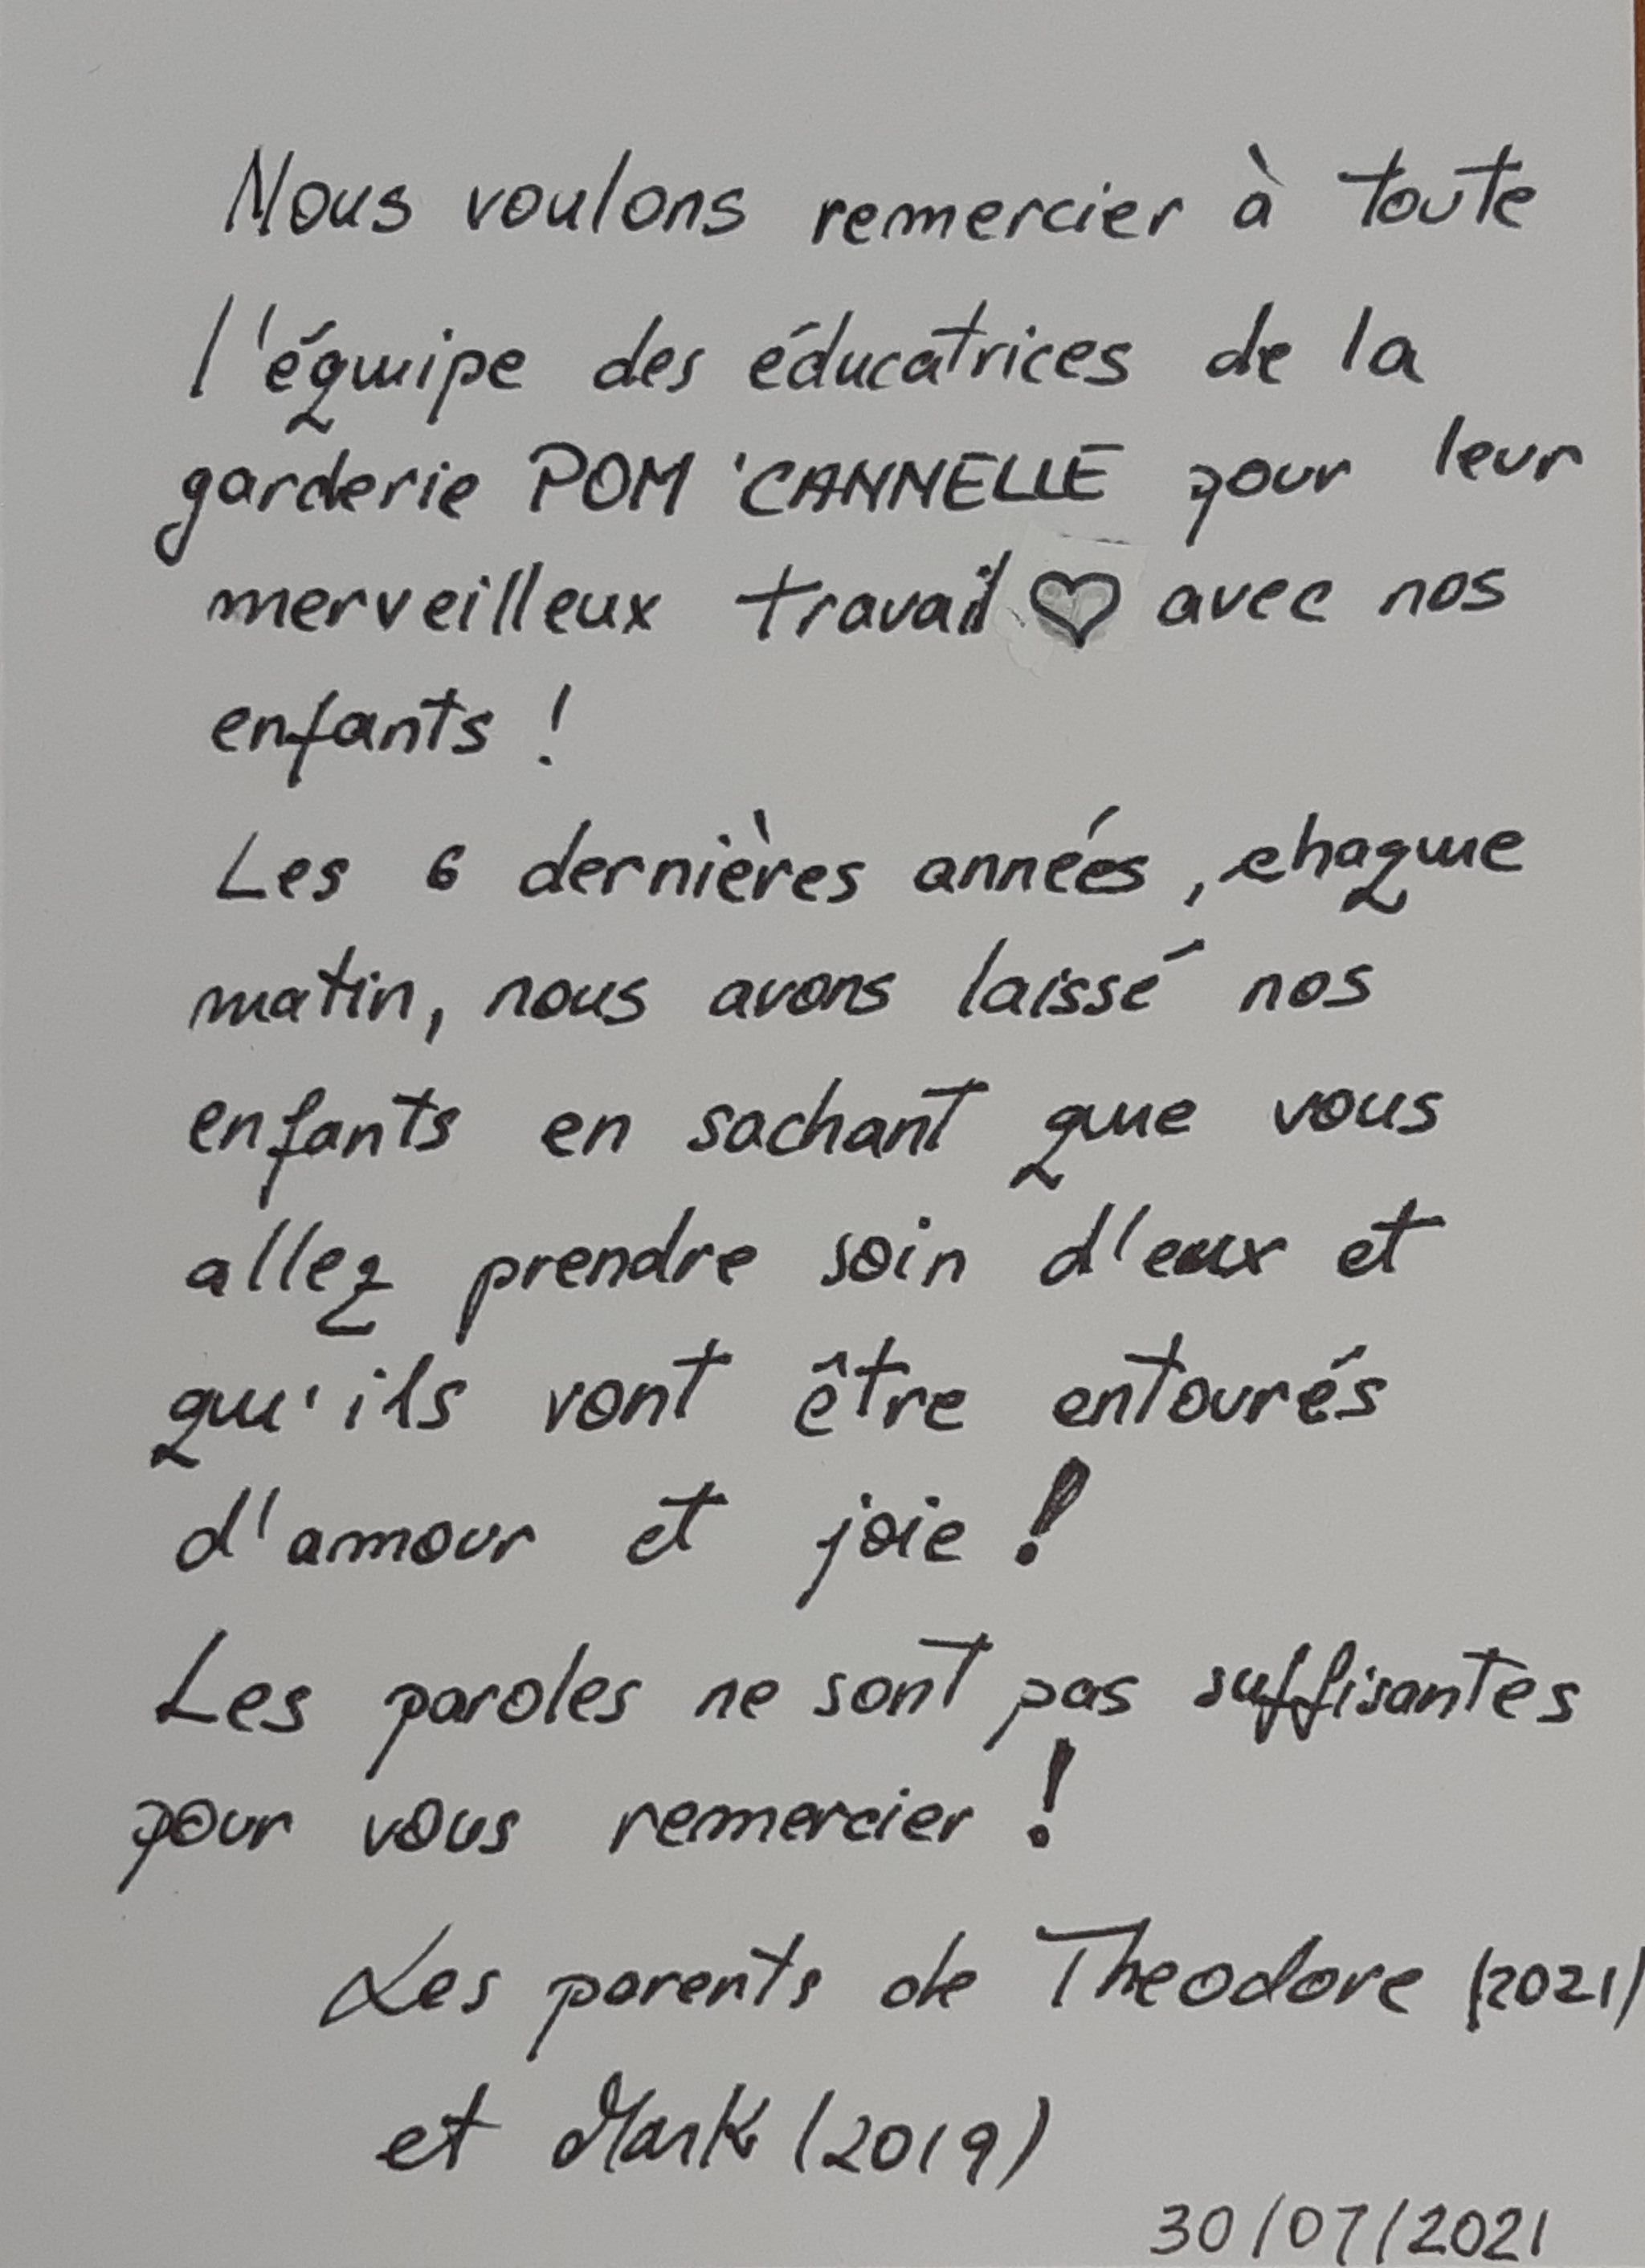 Nous voulons remercier à toute
l'équipe des éducatrices de la
garderie POM'CANNELLE pour leur
merveilleux travail ♡ avec nos
enfants !
Les 6 dernières années, chaque
matin, nous avons laissé nos
enfants en sachant que vous
allez prendre soin d'eux et
qu'ils vont être entourés
d'amour et joie !
Les paroles ne sont pas suffisantes
pour vous remercier !
Les parents de Theodore (2021)
et Mark (2019)
30/07/2021